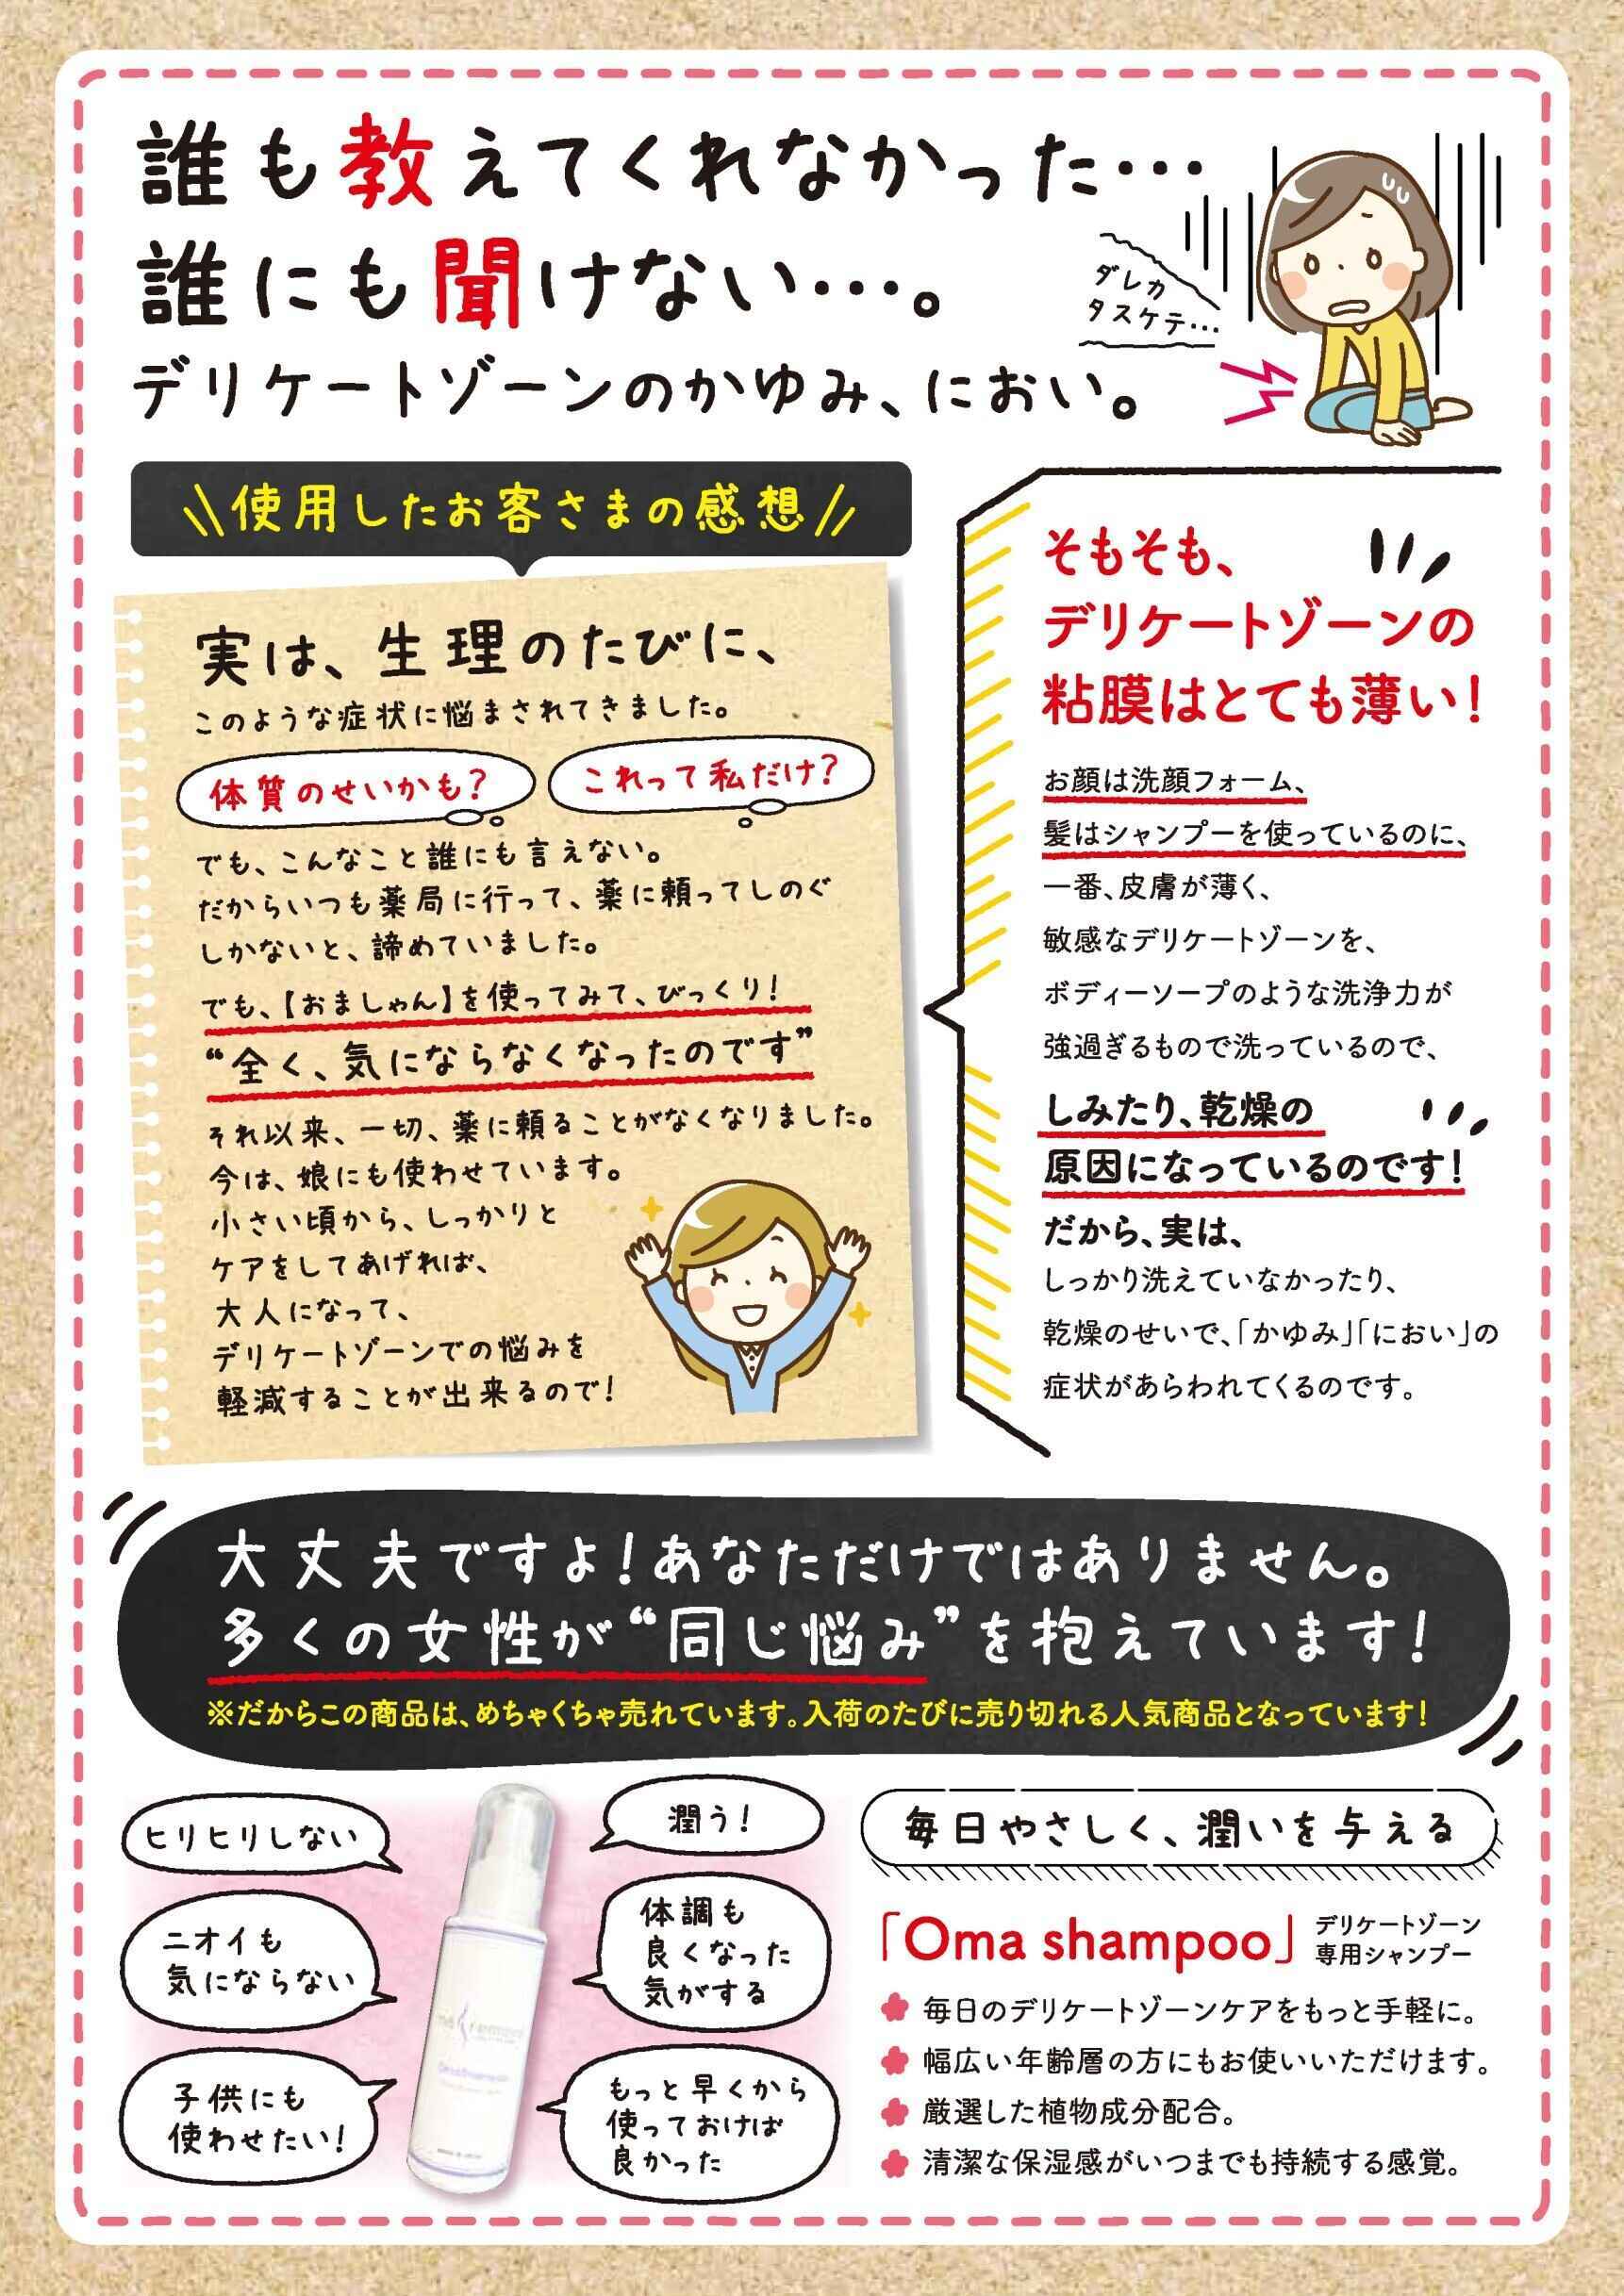 誰も教えてくれなかった…
誰にも聞けない…。
デリケートゾーンのかゆみ、におい。
ダレカ
タスケテ…
使用したお客さまの感想
実は、生理のたびに、
このような症状に悩まされてきました。
体質のせいかも?
これって私だけ?
でも、こんなこと誰にも言えない。
だからいつも薬局に行って、薬に頼ってしのぐ
しかないと、諦めていました。
でも、【おましゃん】を使ってみて、びっくり!
“全く、気にならなくなったのです”
それ以来、一切、薬に頼ることがなくなりました。
今は、娘にも使わせています。
小さい頃から、しっかりと
ケアをしてあげれば、
大人になって、
デリケートゾーンでの悩みを
軽減することが出来るので!
そもそも、
デリケートゾーンの
粘膜はとても薄い!
お顔は洗顔フォーム、
髪はシャンプーを使っているのに、
一番、皮膚が薄く、
敏感なデリケートゾーンを、
ボディーソープのような洗浄力が
強過ぎるもので洗っているので、
しみたり、乾燥の
原因になっているのです!
だから、実は、
しっかり洗えていなかったり、
乾燥のせいで、「かゆみ」「におい」の
症状があらわれてくるのです。
大丈夫ですよ!あなただけではありません。
多くの女性が“同じ悩み”を抱えています!
※だからこの商品は、めちゃくちゃ売れています。入荷のたびに売り切れる人気商品となっています!
ヒリヒリしない
ニオイも
気にならない
子供にも
使わせたい!
潤う!
体調も
良くなった
気がする
もっと早くから
使っておけば
良かった
毎日やさしく、潤いを与える
「Oma shampoo」
デリケートゾーン
専用シャンプー
毎日のデリケートゾーンケアをもっと手軽に。
幅広い年齢層の方にもお使いいただけます。
厳選した植物成分配合。
清潔な保湿感がいつまでも持続する感覚。